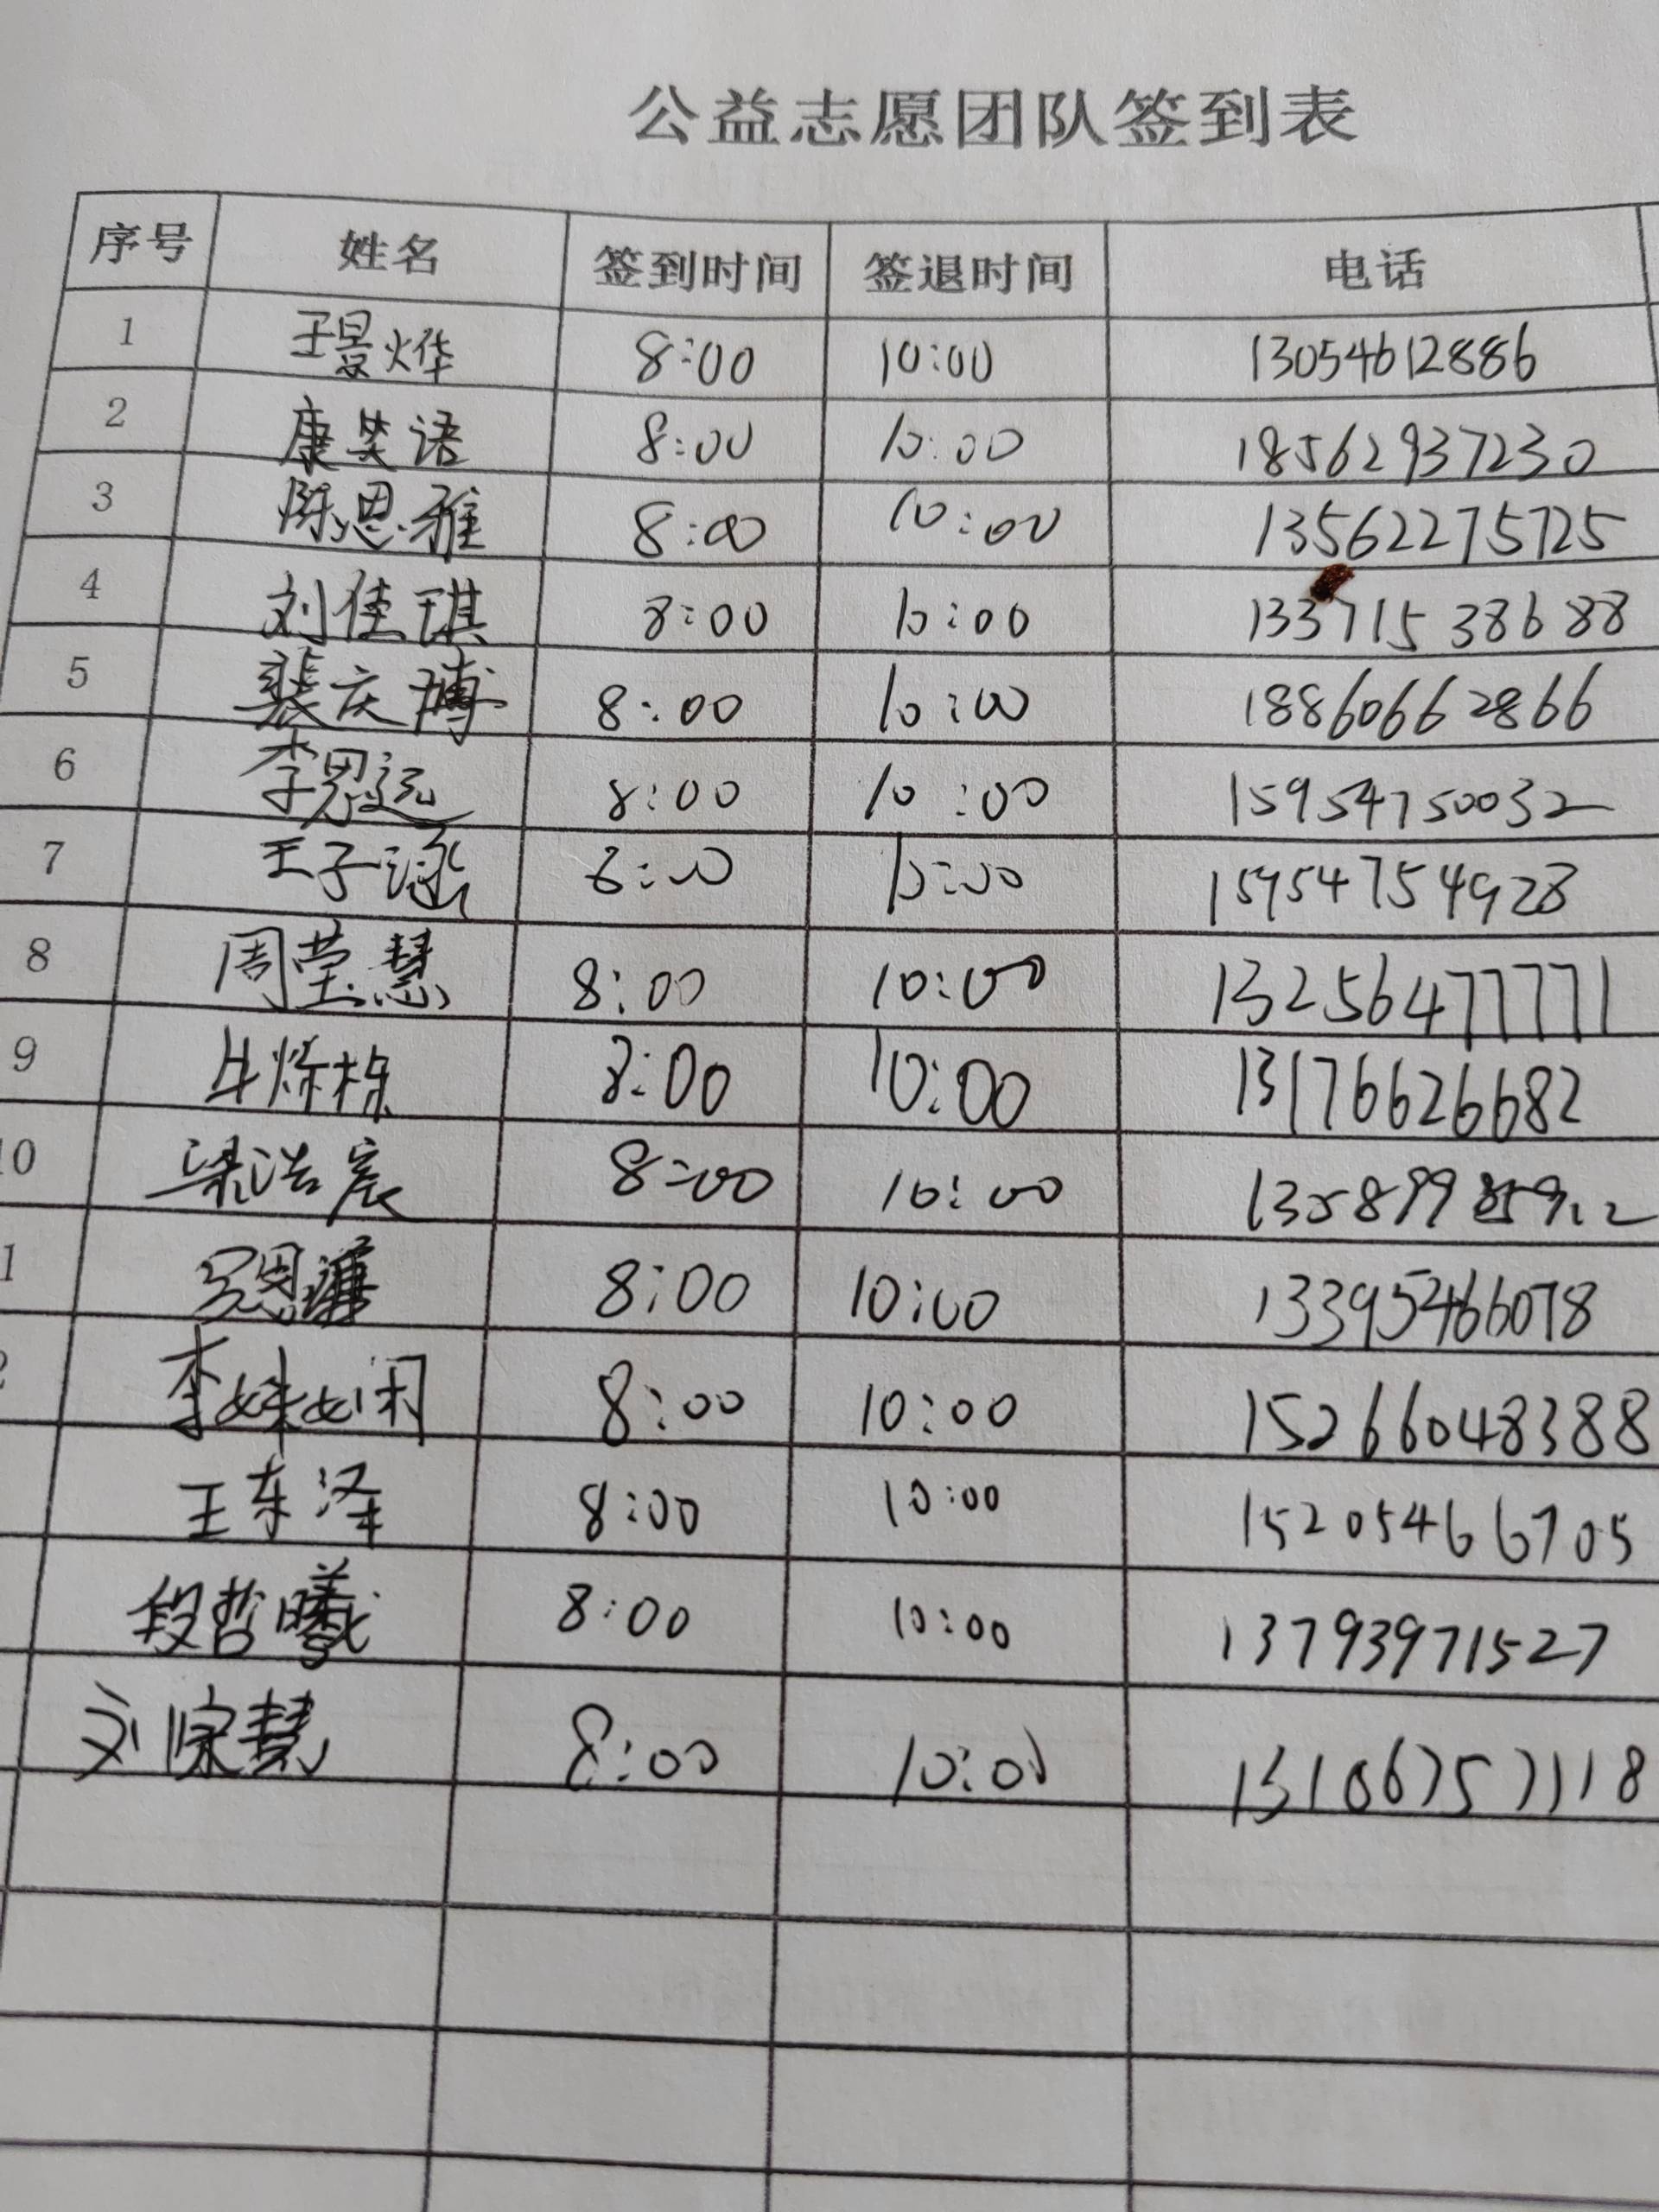 公益志愿团队签到表
序号 姓名 签到时间 签退时间 电话
1 8:00 10:00 13054612886
2 康笑语 8:00 10:00 18562937230
3 陈恩雅 8:00 10:00 13562275725
4 刘佳琪 8:00 10:00 13371538688
5 裴庆博 8:00 10:00 18860662866
6 李思远 8:00 10:00 15954750032
7 王子涵 8:00 10:00 15954754928
8 周莹慧 8:00 10:00 13256477771
9 牛烁栋 8:00 10:00 13176626682
10 梁浩宸 8:00 10:00
1 8:00 10:00 13395466078
李姝娴 8:00 10:00 15266048388
王东泽 8:00 10:00 15205466705
段哲曦 8:00 10:00 13793971527
8:00 10:00 13106757118